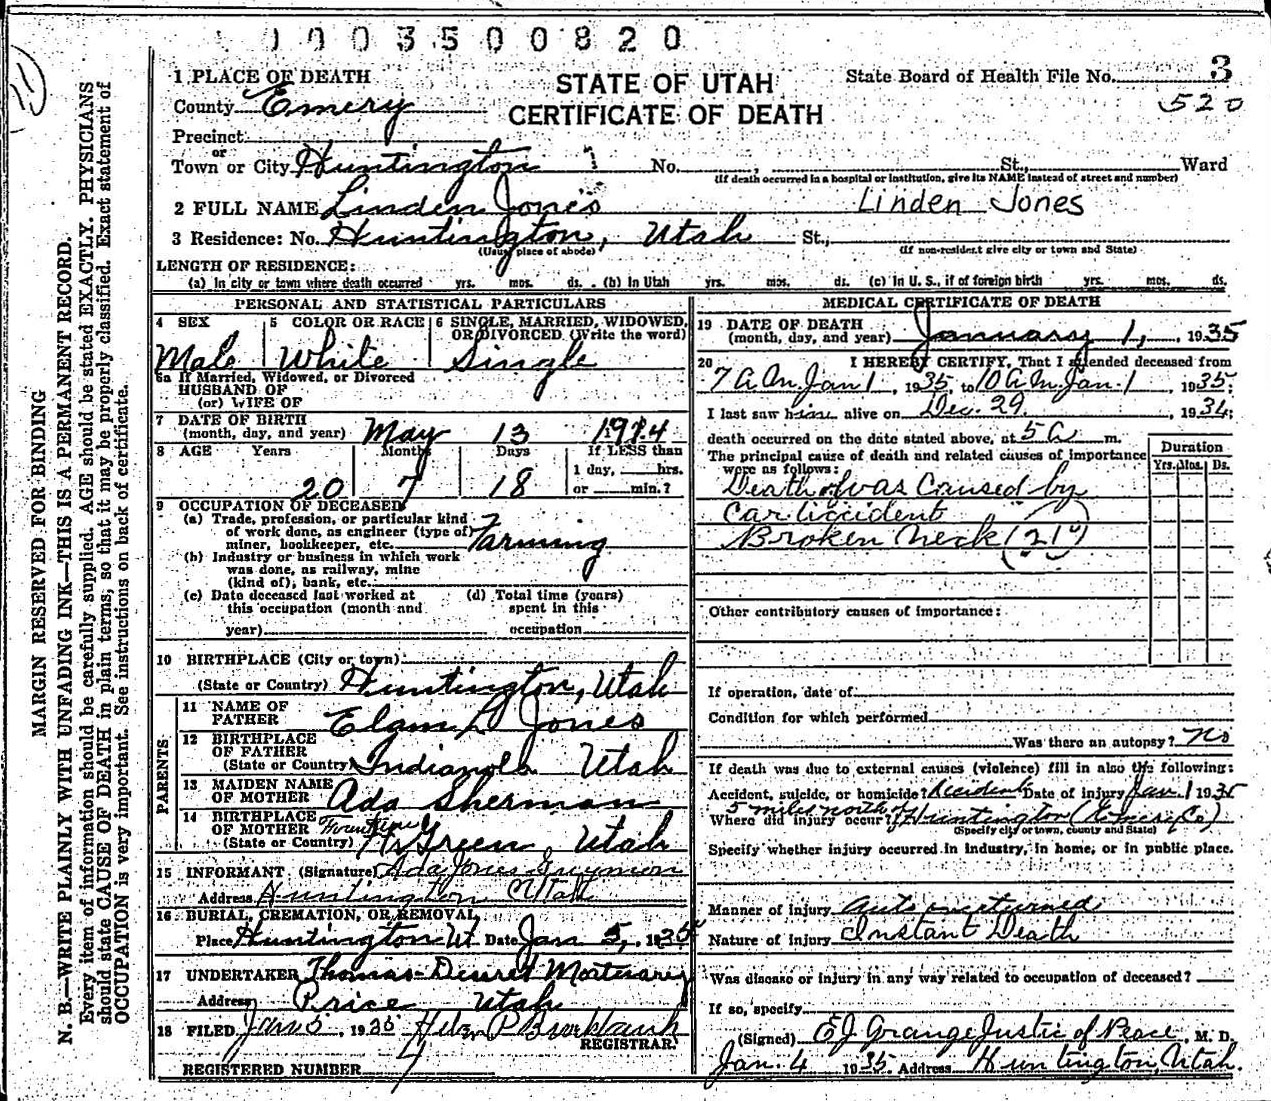 1003500820
11
1 PLACE OF DEATH
STATE OF UTAH
State Board of Health File No. 3
County Emery
CERTIFICATE OF DEATH
520
Precinct
or
Town or City Huntington No. , St., Ward
(If death occurred in a hospital or institution, give its NAME instead of street and number)
2 FULL NAME Linden Jones Linden Jones
3 Residence: No. Huntington, Utah St.,
(Usual place of abode) (If non-resident give city or town and State)
LENGTH OF RESIDENCE:
(a) In city or town where death occurred yrs. mos. ds. (b) In Utah yrs. mos. ds. (c) In U. S., if of foreign birth yrs. mos. ds.
PERSONAL AND STATISTICAL PARTICULARS
4 SEX 5 COLOR OR RACE 6 SINGLE, MARRIED, WIDOWED, OR DIVORCED (Write the word)
Male White Single
6a If Married, Widowed, or Divorced
HUSBAND OF
(or) WIFE OF
7 DATE OF BIRTH
(month, day, and year) May 13 1914
8 AGE Years Months Days If LESS than
1 day, hrs.
20 7 18 or min.?
9 OCCUPATION OF DECEASED
(a) Trade, profession, or particular kind
of work done, as engineer (type of) Farming
miner, bookkeeper, etc.
(b) Industry or business in which work
was done, as railway, mine
(kind of), bank, etc.
(c) Date deceased last worked at (d) Total time (years)
this occupation (month and spent in this
year) occupation
10 BIRTHPLACE (City or town)
(State or Country) Huntington, Utah
PARENTS
11 NAME OF
FATHER Elam L Jones
12 BIRTHPLACE
OF FATHER
(State or Country) Indianola Utah
13 MAIDEN NAME
OF MOTHER Ada Sherman
14 BIRTHPLACE
OF MOTHER Fountain
(State or Country) Green Utah
15 INFORMANT (Signature) Ada Jones
Address Huntington Utah
16 BURIAL, CREMATION, OR REMOVAL
Place Huntington Ut. Date Jan 5, 1935
17 UNDERTAKER Thomas-Deseret Mortuary
Address Price Utah
18 FILED Jan 5, 1935 Helen P
REGISTRAR.
REGISTERED NUMBER 4
MEDICAL CERTIFICATE OF DEATH
19 DATE OF DEATH
(month, day, and year) January 1, 1935
20 I HEREBY CERTIFY, That I attended deceased from
7 A.M. Jan 1, 1935 to 10 A.M. Jan. 1 1935;
I last saw him alive on Dec. 29, 1934;
death occurred on the date stated above, at 5 A m.
The principal cause of death and related causes of importance
were as follows:
Duration
Yrs. Mos. Ds.
Death was Caused by
Car accident
Broken neck (210)
Other contributory causes of importance:
If operation, date of
Condition for which performed
Was there an autopsy? No
If death was due to external causes (violence) fill in also the following:
Accident, suicide, or homicide? Accident Date of injury Jan. 1 1935
5 miles north of
Where did injury occur? Huntington (Emery Co)
(Specify city or town, county and State)
Specify whether injury occurred in industry, in home, or in public place.
Manner of injury Auto overturned
Nature of injury Instant Death
Was disease or injury in any way related to occupation of deceased?
If so, specify
(Signed) E J Grange Justice of Peace, M. D.
Jan. 4 1935. Address Huntington, Utah.
MARGIN RESERVED FOR BINDING
N. B.—WRITE PLAINLY WITH UNFADING INK—THIS IS A PERMANENT RECORD.
Every item of information should be carefully supplied. AGE should be stated EXACTLY. PHYSICIANS
should state CAUSE OF DEATH in plain terms, so that it may be properly classified. Exact statement of
OCCUPATION is very important. See instructions on back of certificate.